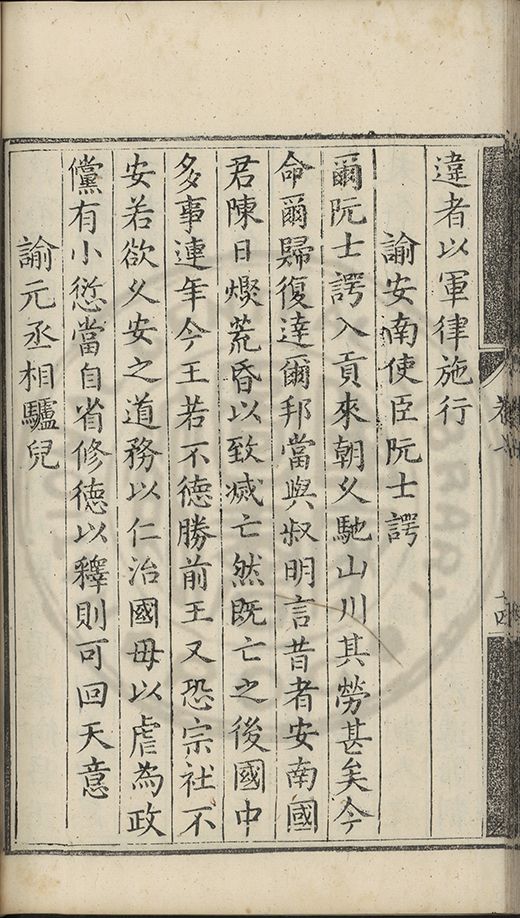 違者以軍律施行
諭安南使臣阮士諤
爾阮士諤入貢來朝乆馳山川其勞甚矣今
命爾歸復達爾邦當與叔明言昔者安南國
君陳日熞荒昏以致滅亡然既亡之後國中
多事連年今王若不德勝前王又恐宗社不
安若欲乆安之道務以仁治國毋以虐為政
儻有小愆當自省修德以釋則可回天意
諭元丞相驢兒
卷七